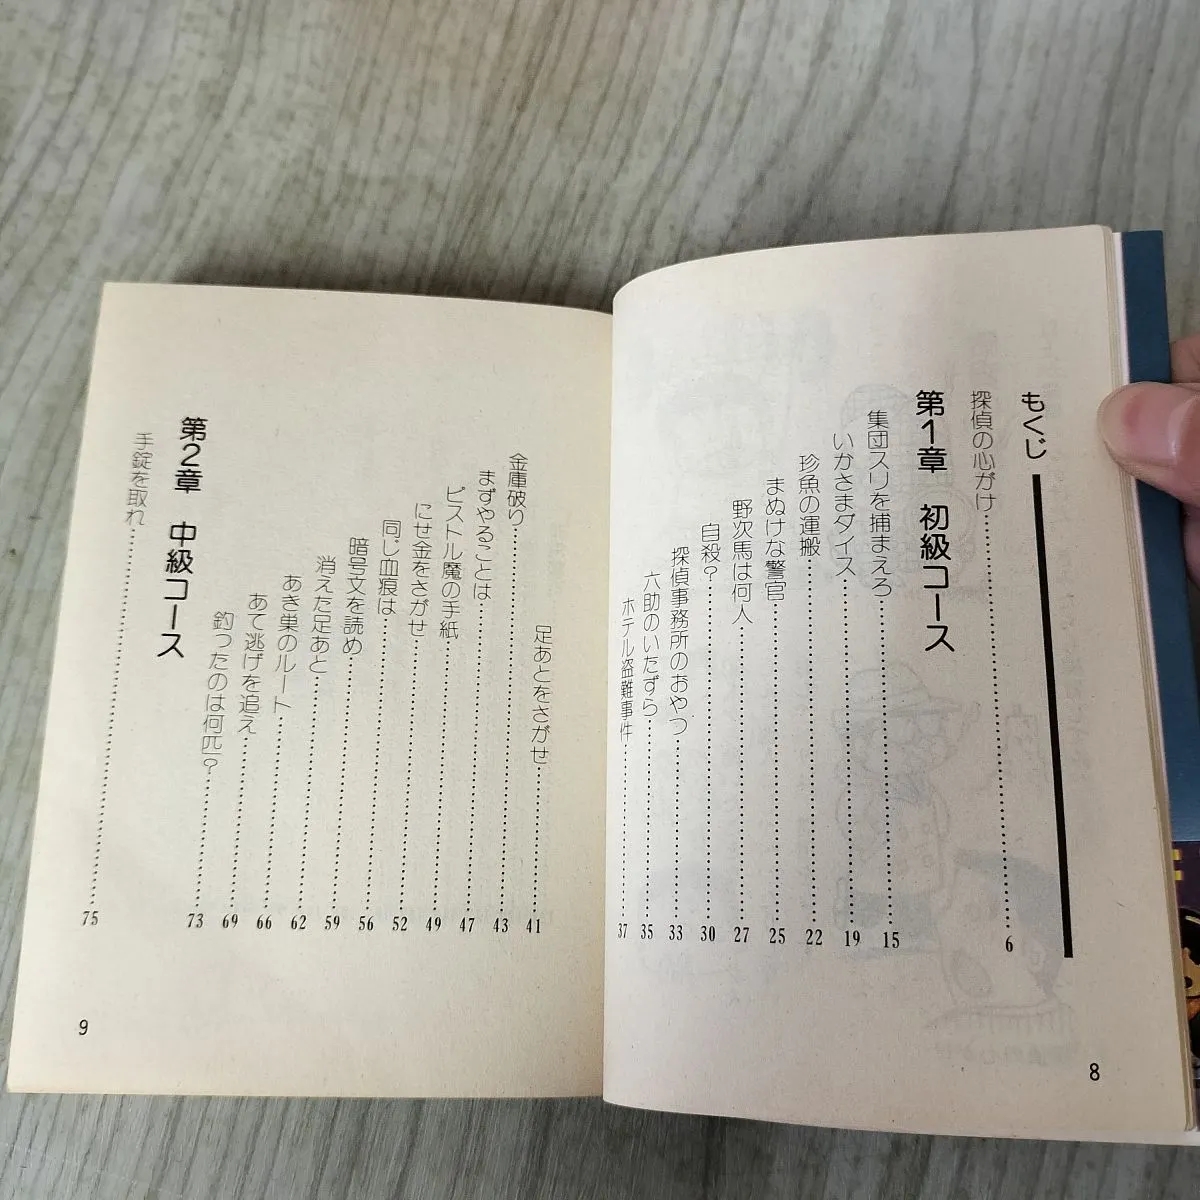 もくじ
探偵の心がけ……6
第1章 初級コース
集団スリを捕まえろ……15
いかさまダイス……19
珍魚の運搬……22
まぬけな警官……25
野次馬は何人……27
自殺？……30
探偵事務所のおやつ……33
六助のいたずら……35
ホテル盗難事件……37
8
足あとをさがせ……41
金庫破り……43
まずやることは……47
ピストル魔の手紙……49
にせ金をさがせ……52
同じ血痕は……56
暗号文を読め……59
消えた足あと……62
あき巣のルート……66
あて逃げを追え……69
釣ったのは何匹？……73
第2章 中級コース
手錠を取れ……75
9